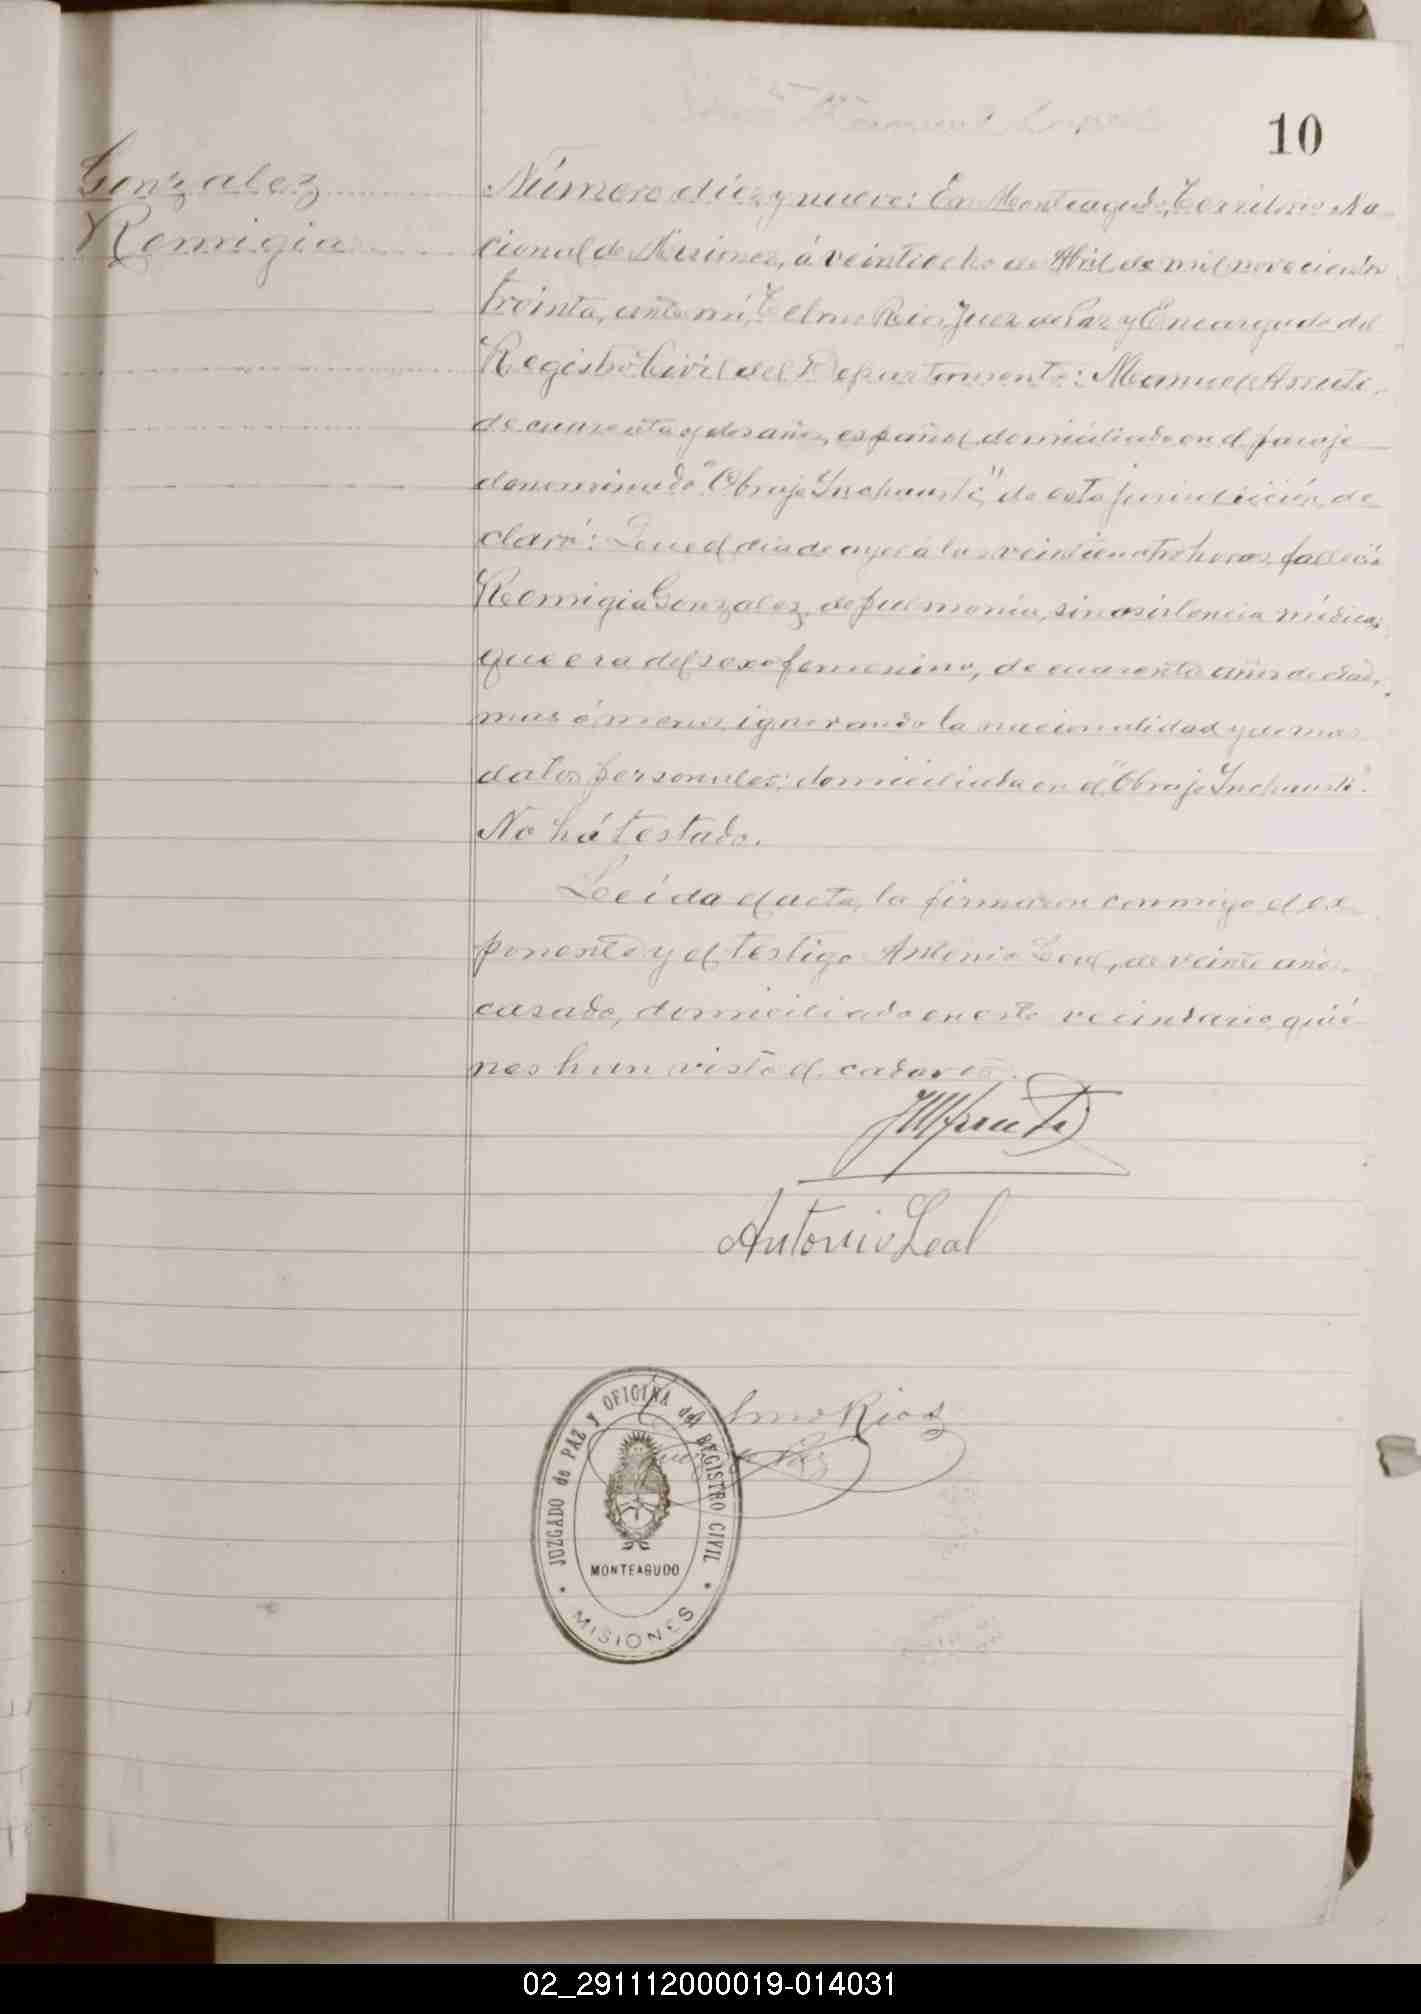 10
Gonzalez
Remigia
Número diez y nueve: En Monteagudo, Territorio Na-
cional de Misiones, á veintiocho de Abril de mil novecientos
treinta, ante mí, Telmo Rios, Juez de Paz y Encargado del
Registro Civil del Departamento: Manuel
de cuarenta y dos años, español, domiciliado en el paraje
denominado "Obraje Inchausti", de esta jurisdicción, de
claró: Que el día de ayer á las veinticuatro horas, falleció
Remigia Gonzalez, de pulmonia, sin asistencia médica,
que era del sexo femenino, de cuarenta años de edad,
mas ó menos, ignorando la nacionalidad y demas
datos personales; domiciliada en el "Obraje Inchausti".
No há testado.
Leída el acta, la firmaron conmigo el ex
ponente y el testigo Antonio Leal, de veinte años,
casado, domiciliado en este vecindario, quié
nes han visto el cadaver.
Antonio Leal
Telmo Rios
Juez de Paz
JUZGADO de PAZ y OFICINA del REGISTRO CIVIL
MONTEAGUDO
MISIONES
02_291112000019-014031